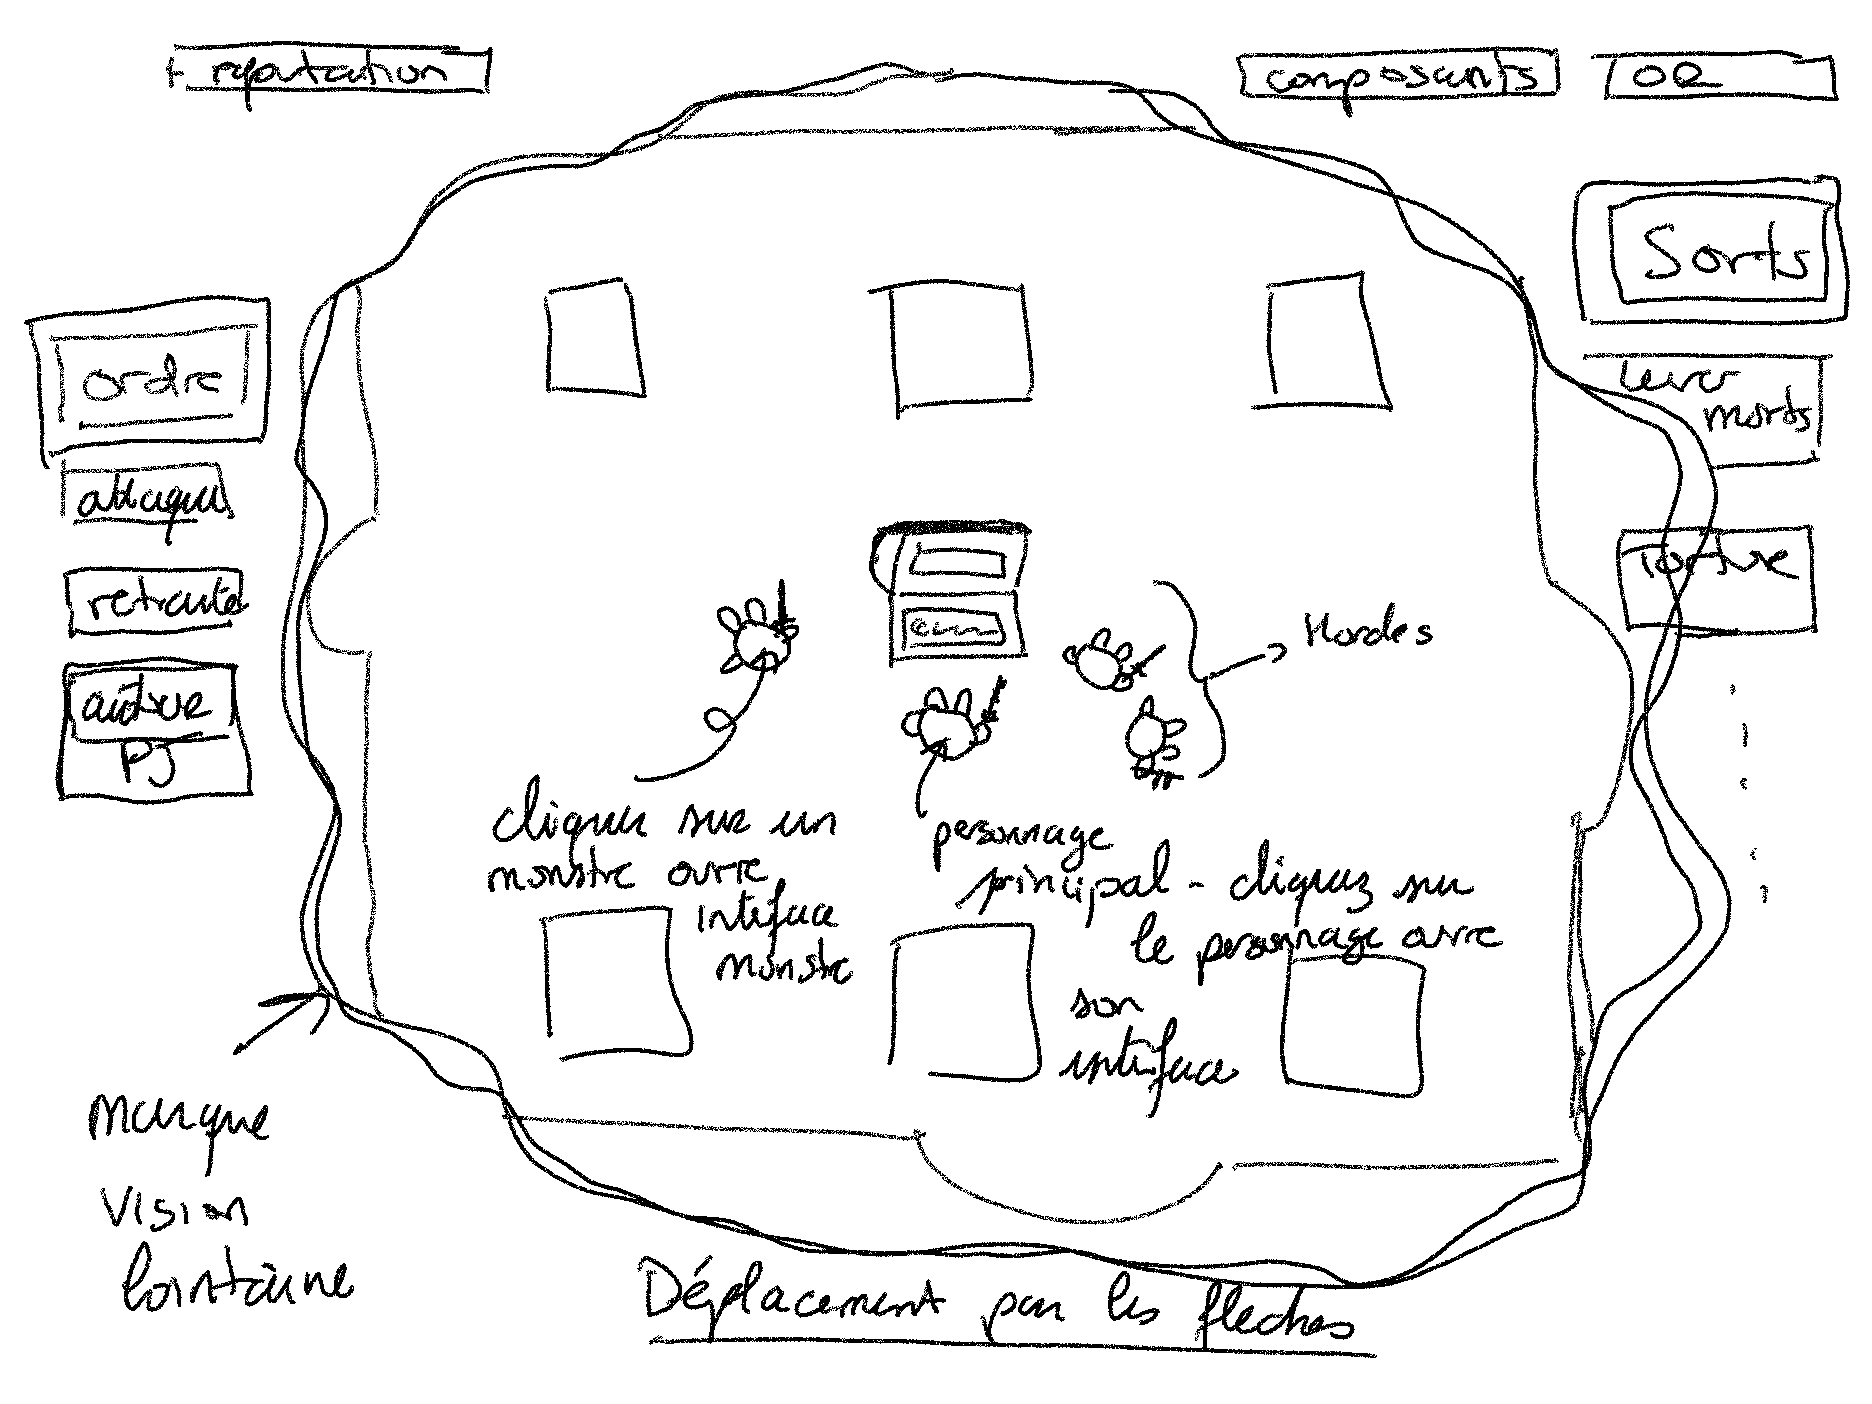 + reputation
composants
OR
Sorts
lever
morts
Torture
ordre
attaque
retraite
autre
PJ
Hordes
cliquer sur un
monstre ouvre
interface
monstre
personnage
principal - cliquez sur
le personnage ouvre
son
interface
Marque
vision
lointaine
Déplacement par les fleches